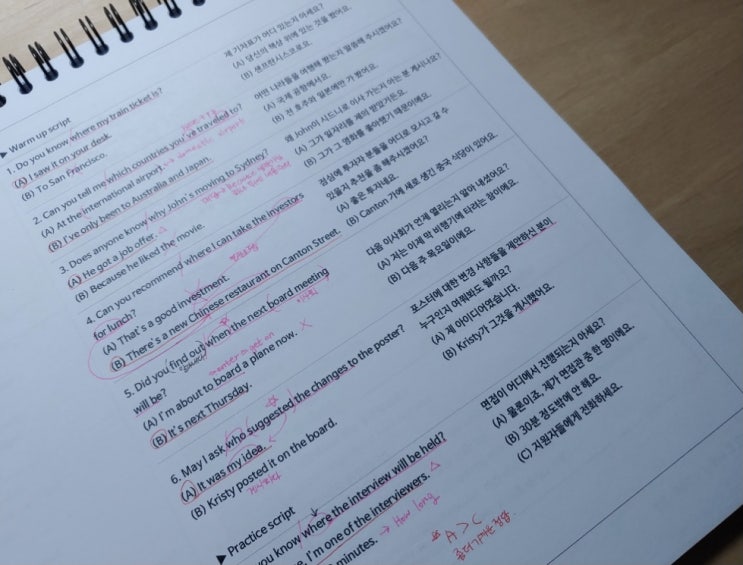 ▶ Warm up script
1. Do you know where my train ticket is?
(A) I saw it on your desk.
(B) To San Francisco.
2. Can you tell me which countries you've traveled to?
(A) At the international airport. → domestic airport
(B) I've only been to Australia and Japan.
3. Does anyone know why John's moving to Sydney?
(A) He got a job offer. △
(B) Because he liked the movie.
4. Can you recommend where I can take the investors
for lunch?
(A) That's a good investment.
(B) There's a new Chinese restaurant on Canton Street.
5. Did you find out when the next board meeting
will be?
이사회
(A) I'm about to board a plane now. X
(B) It's next Thursday.
6. May I ask who suggested the changes to the poster?
(A) It was my idea.
(B) Kristy posted it on the board.
게시하다
▶ Practice script
you know where the interview will be held?
I'm one of the interviewers. △
minutes. → How long
제 기차표가 어디 있는지 아세요?
(A) 당신의 책상 위에 있는 것을 봤어요.
(B) 샌프란시스코로요.
어떤 나라들을 여행해 봤는지 말씀해 주시겠어요?
(A) 국제 공항에서요.
(B) 전 호주와 일본에만 가 봤어요.
왜 John이 시드니로 이사 가는지 아는 분 계시나요?
(A) 그가 일자리를 제의 받았거든요.
(B) 그가 그 영화를 좋아했기 때문이에요.
점심에 투자자 분들을 어디로 모시고 갈 수
있을지 추천을 좀 해주시겠어요?
(A) 좋은 투자네요.
(B) Canton 가에 새로 생긴 중국 식당이 있어요.
다음 이사회가 언제 열리는지 알아 내셨어요?
(A) 저는 이제 막 비행기에 타려는 참이에요.
(B) 다음 주 목요일이에요.
포스터에 대한 변경 사항들을 제안하신 분이
누구인지 여쭤봐도 될까요?
(A) 제 아이디어였습니다.
(B) Kristy가 그것을 게시했어요.
면접이 어디에서 진행되는지 아세요?
(A) 물론이죠, 제가 면접관 중 한 명이에요.
(B) 30분 정도밖에 안 해요.
(C) 지원자들에게 전화하세요.
A > C